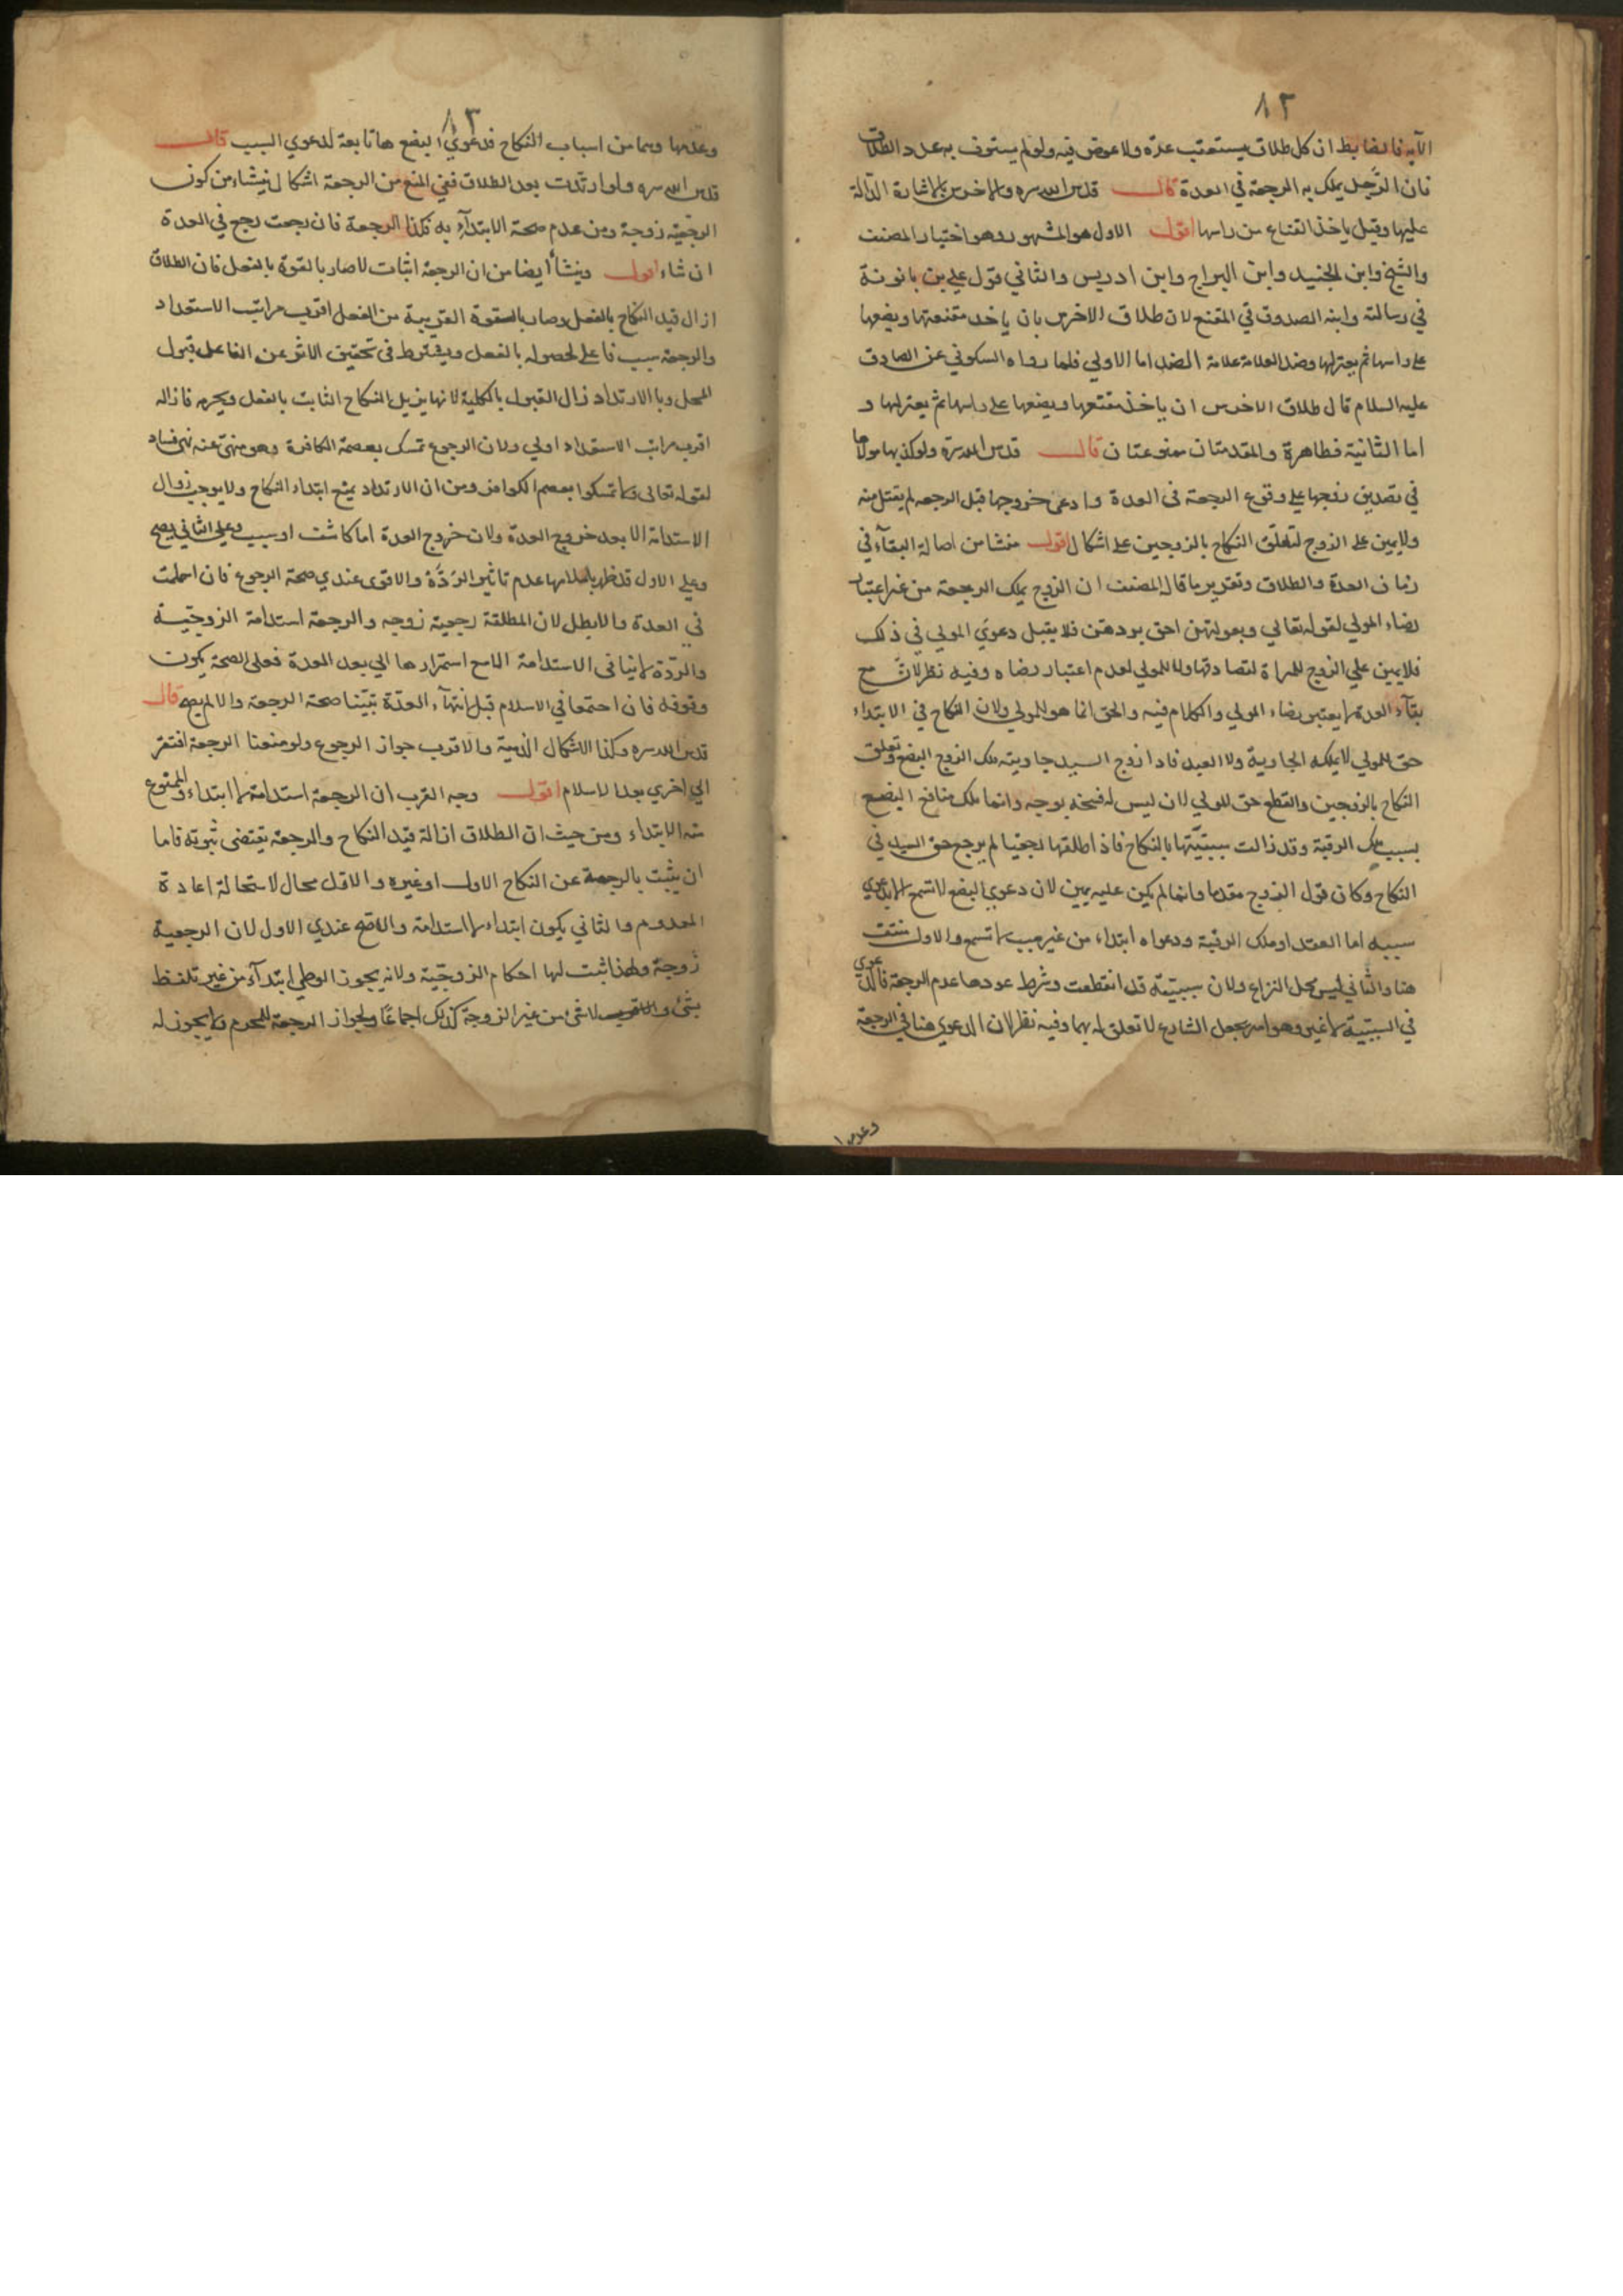 ٨٢
الآية فالضابط ان كل طلاق يستعقب عدة ولا عوض فيه ولو لم يستوف به عدد الطلاق
فان الرجل يملك به الرجعة في العدة قال قدس الله سره والاخرس بالاشارة الدالة
عليها وقيل ياخذ القناع من راسها اقول الاول هو المشهور وهو اختيار المصنف
والشيخ وابن الجنيد وابن البراج وابن ادريس والثاني قول علي بن بابويه
في رسالته وابنه الصدوق في المقنع لان طلاق الاخرس بان ياخذ مقنعتها ويضعها
على راسها ثم يعتزلها وضد العلامة علامة الضد اما الاولي فلما رواه السكوني عن الصادق
عليه السلام قال طلاق الاخرس ان ياخذ مقنعتها ويضعها على راسها ثم يعتزلها و
اما الثانية فظاهرة والمقدمتان ممنوعتان قال قدس الله سره ولو كذبها مولاها
في تصديق زوجها على وقوع الرجعة في العدة وادعى خروجها قبل الرجعة لم يقبل منه
ولا يمين على الزوج لتعلق النكاح بالزوجين على اشكال اقول منشا من اصالة البقآء في
زمان العدة والطلاق وتقرير ما قال المصنف ان الزوج يملك الرجعة من غير اعتبار
رضاء المولي لقوله تعالي وبعولتهن احق بردهن فلا يقبل دعوي المولي في ذلك
فلا يمين علي الزوج للمراة لتصادقهما ولا للمولي لعدم اعتبار رضاه وفيه نظر لان مع
بقآء العدة لا يعتبر رضاء المولي والكلام فيه والحق انما هو للمولي ولان النكاح في الابتداء
حق للمولي لا يملكه الجارية ولا العبد فاذا زوج السيد جاريته ملك الزوج البضع وتعلق
النكاح بالزوجين والقطع حق للمولي لان ليس له فسخه بوجه وانما ملك منافع البضع
بسبب ملك الرقبة وقد زالت سببيتها بالنكاح فاذا طلقها رجعيا لم يرجع حق السيد في
النكاح وكان قول الزوج مقدما وانما لم يكن عليه يمين لان دعوي البضع لا تسمع الا بدعوي
سببه اما العقد او ملك الرقبة ودعواه ابتداء من غير سبب لا تسمع والاول منتف
هنا والثاني ليس محل النزاع ولان سببيته قد انقطعت وشرط عودها عدم الرجعة فالدعوي
في السببية لا غير وهو امر بجعل الشارع لا تعلق له بهما وفيه نظر لان الدعوي هنا في الرجعة
٨٣
وعدمها وهما من اسباب النكاح فدعوي البضع هنا تابعة لدعوي السبب قال
قدس الله سره ولو ارتدت بعد الطلاق ففي المنع من الرجعة اشكال ينشاء من كون
الرجعية زوجة ومن عدم صحة الابتدآء به فكذا الرجعة فان رجعت رجع في العدة
ان شاء اقول وينشأ ايضا من ان الرجعة اثبات لما صار بالقوة بالفعل فان الطلاق
ازال قيد النكاح بالفعل وصار بالقوة القريبة من الفعل اقرب مراتب الاستعداد
والرجعة سبب فاعلي لحصوله بالفعل ويشترط في تحقيق الاثر عن الفاعل قبول
المحل وبالارتداد زال القبول بالكلية لانها يزيل النكاح الثابت بالفعل ويحرمه فازالة
اقرب مراتب الاستعداد اولي ولان الرجوع تمسك بعصمة الكافرة وهو منهي عنه نهي فساد
لقوله تعالى ولا تمسكوا بعصم الكوافر ومن ان الارتداد يمنع ابتداء النكاح ولا يوجب زوال
الاستدامة الا بعد خروج العدة ولان خروج العدة اما كاشف او سبب وعلي الثاني يصح
وعلي الاول قد ظهر باسلامها عدم تاثير الردة والاقوى عندي صحة الرجوع فان اسلمت
في العدة والا بطل لان المطلقة رجعية زوجه والرجعة استدامة الزوجية
والردة لا ينافي الاستدامة الا مع استمرارها الي بعد العدة فعلى الصحة يكون
وقوفه فان اجتمعا في الاسلام قبل انتهآء العدة تبينا صحة الرجعة والا لم يصح قال
قدس الله سره وكذا الاشكال الذمية والاقرب جواز الرجوع ولو منعنا الرجعة افتقر
الي اخري بعد الاسلام اقول وجه القرب ان الرجعة استدامة لا ابتداء والممنوع
منه الابتداء ومن حيث ان الطلاق ازالة قيد النكاح والرجعة يقتضى ثبوته فاما
ان يثبت بالرجعة عن النكاح الاول او غيره والاول محال لاستحالة اعادة
المعدوم والثاني يكون ابتداء لا استدامة والاصح عندي الاول لان الرجعية
زوجة ولهذا ثبت لها احكام الزوجية ولانه يجوز الوطي ابتدآء من غير تلفظ
بشئ ولا شئ من غير الزوجة كذلك اجماعا ولجواز الرجعة للمحرم ولا يجوز له